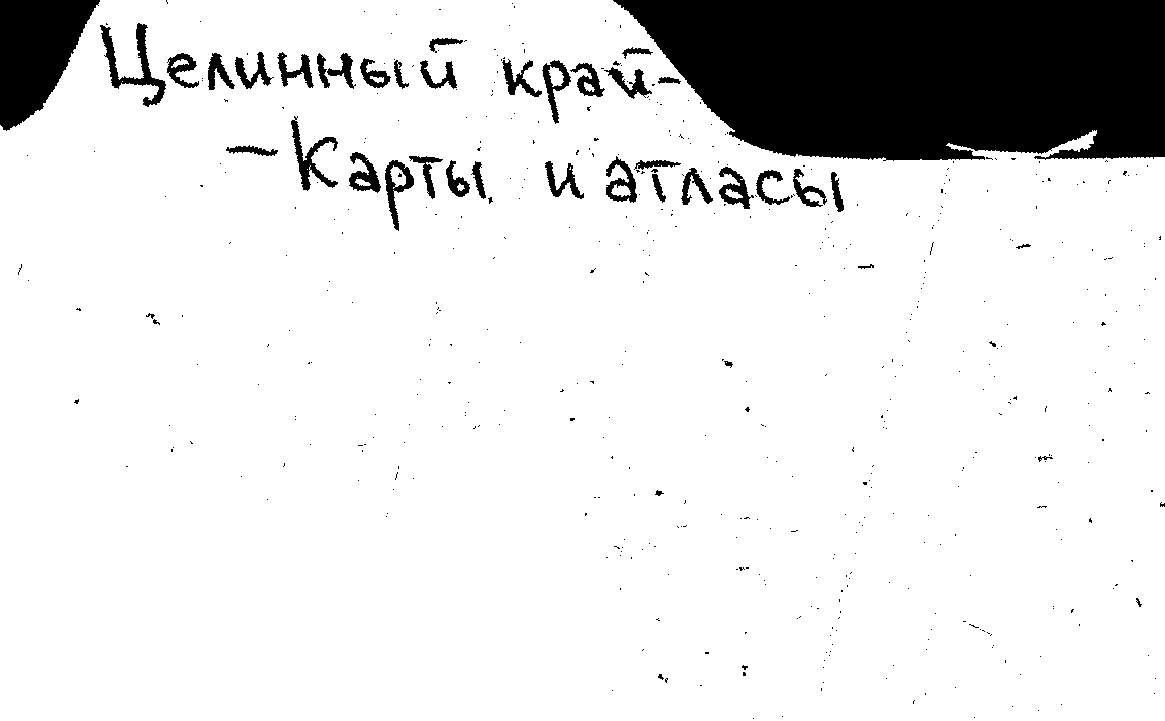 Целинный край-
-Карты и атласы